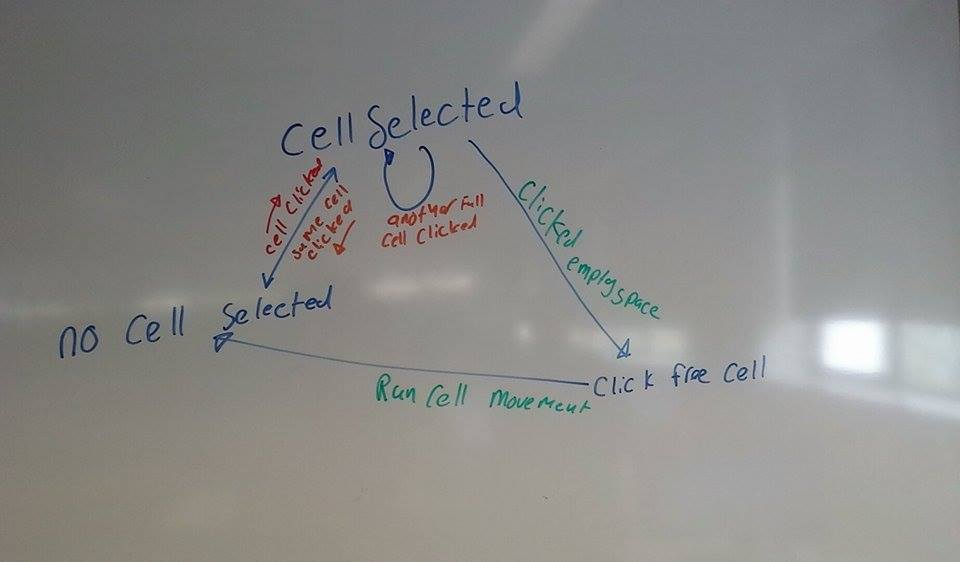 Cell Selected
cell clicked
same cell
clicked
another full
cell clicked
Clicked
empty space
no Cell Selected
Click free Cell
Run Cell Movement